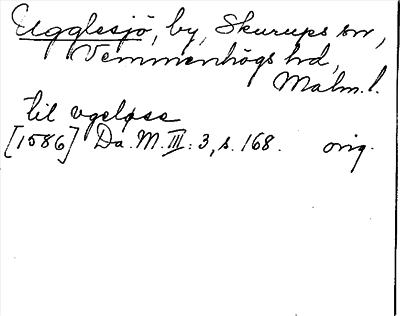 Ugglesjö, by, Skurups sn,
Vemmenhögs hd,
Malm. l.
til vgeløsse
[1586] Da. M. III: 3, s. 168. orig.